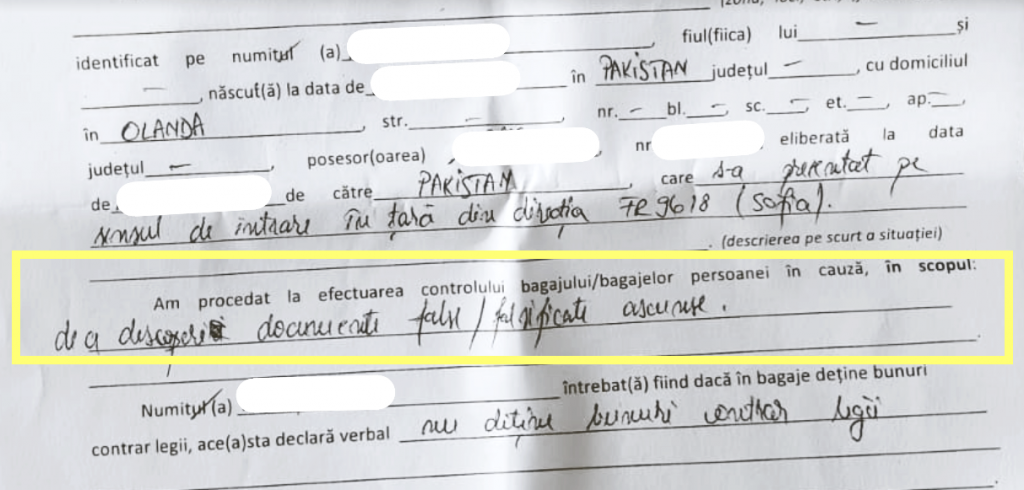 identificat pe numitul (a) , fiul(fiica) lui — și
— , născut(ă) la data de în PAKISTAN județul — , cu domiciliul
în OLANDA , str. — , nr. — bl. —, sc. —, et. —, ap. —,
județul — , posesor(oarea) , nr eliberată la data
de de către PAKISTAN , care s-a prezentat pe
sensul de intrare în țară din direcția FR 9618 (Sofia).
. (descrierea pe scurt a situației)
Am procedat la efectuarea controlului bagajului/bagajelor persoanei în cauză, în scopul:
de a descoperi documente false/falsificate ascunse.
Numitul/(a) întrebat(ă) fiind dacă în bagaje deține bunuri
contrar legii, ace(a)sta declară verbal nu deține bunuri contrar legii